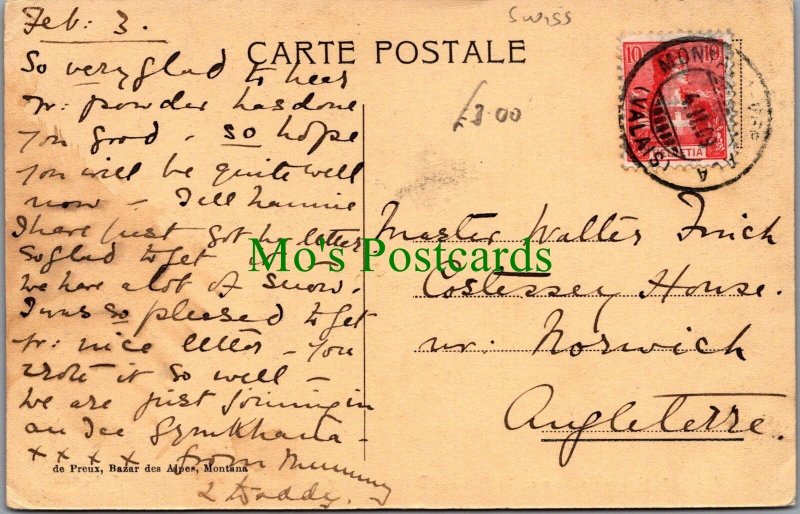 Feb: 3.
Swiss
CARTE POSTALE
So very glad to hear
yr: powder has done
you good. so hope
you will be quite well
now – Tell nannie
I have just got her letter
So glad to get it.
we have a lot of snow.
I was so pleased to get
yr: nice letter – you
wrote it so well –
we are just joining in
an Ice Gymkhana –
x x x x from Mummy
& Daddy.
de Preux, Bazar des Alpes, Montana
£3.00
10
(VALAIS)
Master Walter Finch
Costessey House.
nr: Norwich
Angleterre.
Mo's Postcards